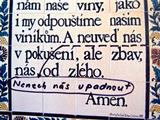 nám naše viny, jako
i my odpouštíme našim
viníkům. A neuveď nás
v pokušení, ale zbav
nás od zlého.
Nenech nás upadnout
Amen.